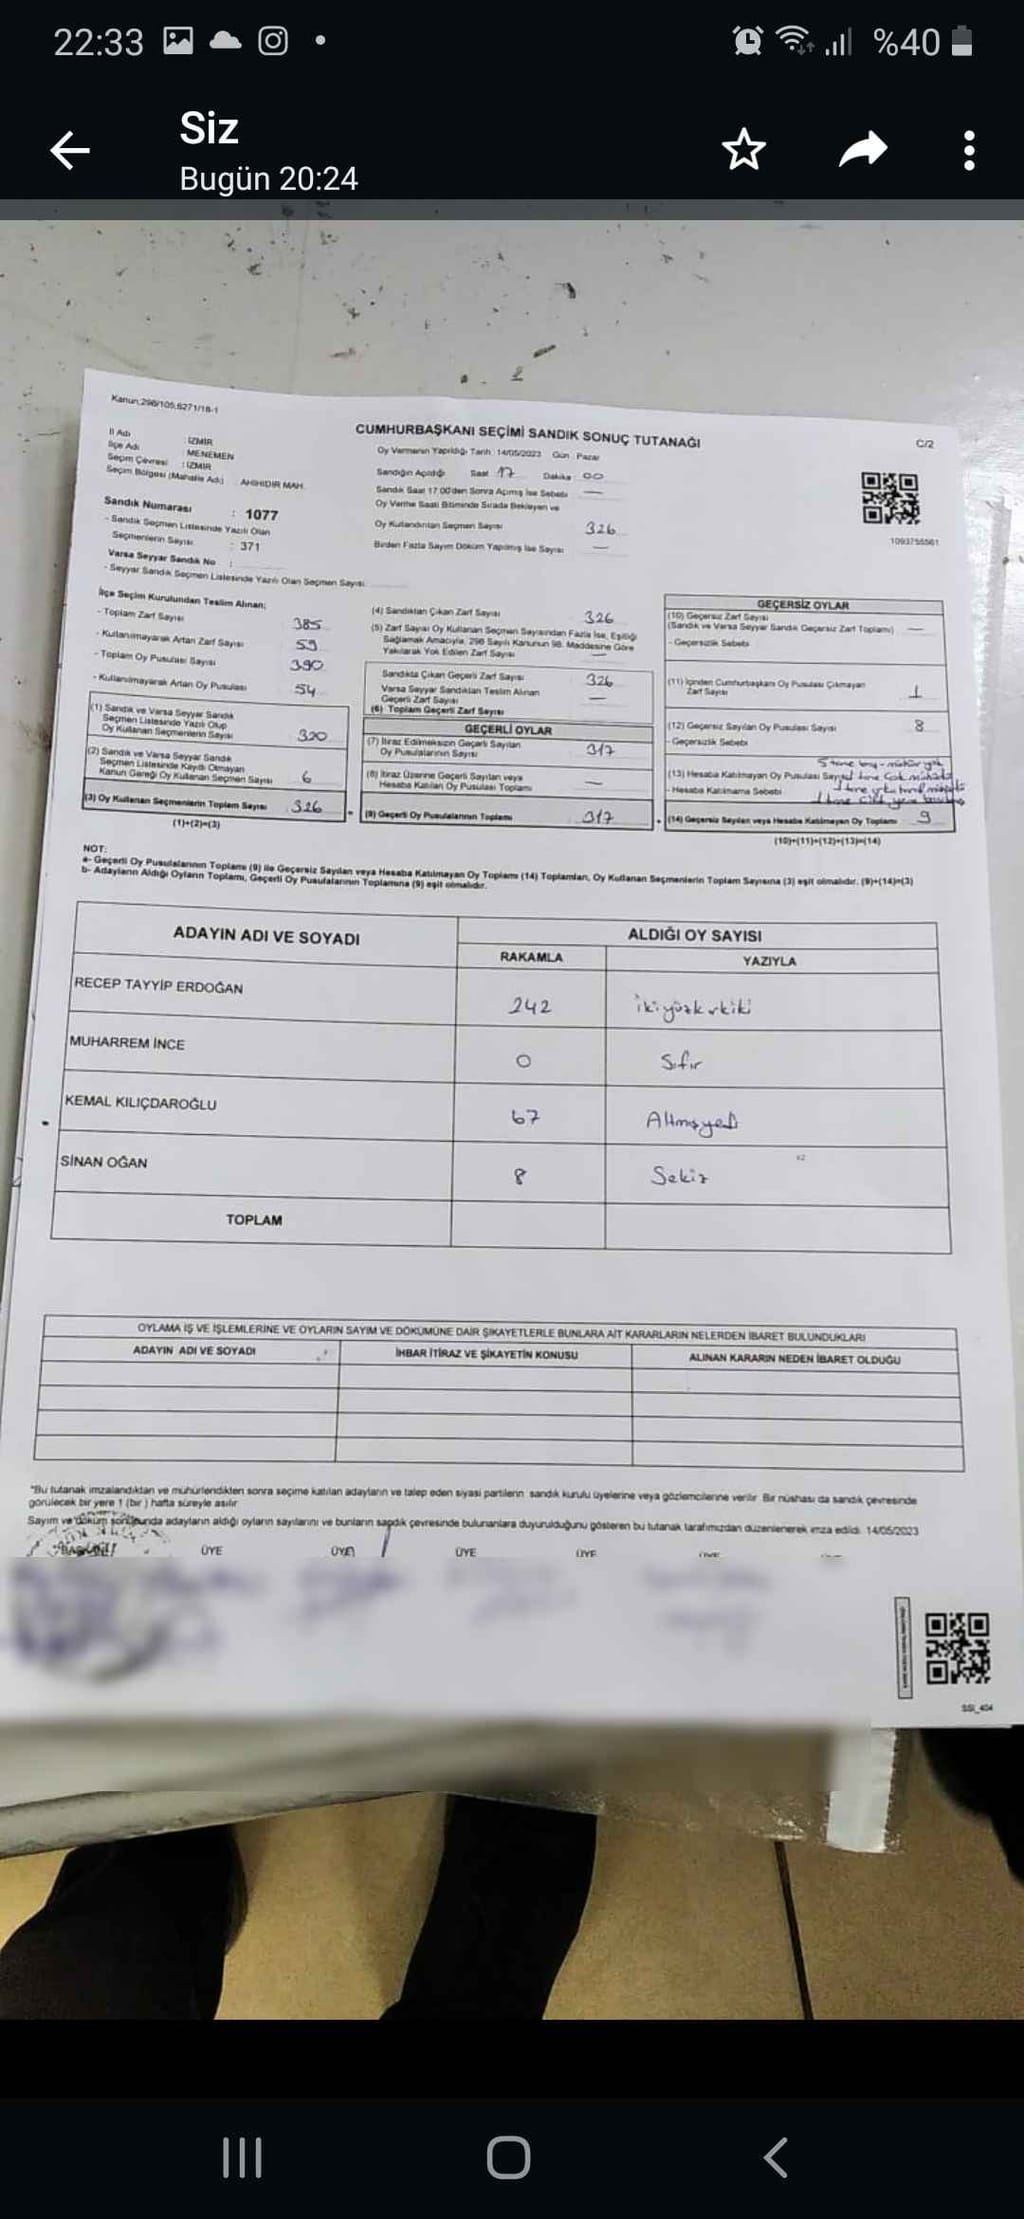 22:33
%40
Siz
Bugün 20:24
Kanun:298/105;6271/18-1
CUMHURBAŞKANI SEÇİMİ SANDIK SONUÇ TUTANAĞI
C/2
İl Adı : İZMİR
İlçe Adı : MENEMEN
Seçim Çevresi : İZMİR
Seçim Bölgesi (Mahalle Adı) : AHIHIDIR MAH.
Oy Vermenin Yapıldığı Tarih: 14/05/2023 Gün: Pazar
Sandığın Açıldığı Saat 17 Dakika 00
Sandık Saat 17.00'den Sonra Açılmış İse Sebebi —
Oy Verme Saati Bitiminde Sırada Bekleyen ve
Oy Kullandırılan Seçmen Sayısı 326
Birden Fazla Sayım Döküm Yapılmış İse Sayısı —
1093755561
Sandık Numarası : 1077
- Sandık Seçmen Listesinde Yazılı Olan
Seçmenlerin Sayısı : 371
Varsa Seyyar Sandık No :
- Seyyar Sandık Seçmen Listesinde Yazılı Olan Seçmen Sayısı
İlçe Seçim Kurulundan Teslim Alınan;
- Toplam Zarf Sayısı 385
- Kullanılmayarak Artan Zarf Sayısı 59
- Toplam Oy Pusulası Sayısı 390
- Kullanılmayarak Artan Oy Pusulası 54
(1) Sandık ve Varsa Seyyar Sandık
Seçmen Listesinde Yazılı Olup
Oy Kullanan Seçmenlerin Sayısı 320
(2) Sandık ve Varsa Seyyar Sandık
Seçmen Listesinde Kaydı Olmayan
Kanun Gereği Oy Kullanan Seçmen Sayısı 6
(3) Oy Kullanan Seçmenlerin Toplam Sayısı 326
(1)+(2)=(3)
(4) Sandıktan Çıkan Zarf Sayısı 326
(5) Zarf Sayısı Oy Kullanan Seçmen Sayısından Fazla İse, Eşitliği
Sağlamak Amacıyla, 298 Sayılı Kanunun 98. Maddesine Göre
Yakılarak Yok Edilen Zarf Sayısı —
Sandıkta Çıkan Geçerli Zarf Sayısı 326
Varsa Seyyar Sandıktan Teslim Alınan
Geçerli Zarf Sayısı —
(6) Toplam Geçerli Zarf Sayısı
GEÇERLİ OYLAR
(7) İtiraz Edilmeksizin Geçerli Sayılan
Oy Pusulalarının Sayısı 317
(8) İtiraz Üzerine Geçerli Sayılan veya
Hesaba Katılan Oy Pusulası Toplamı —
(9) Geçerli Oy Pusulalarının Toplamı 317
GEÇERSİZ OYLAR
(10) Geçersiz Zarf Sayısı
(Sandık ve Varsa Seyyar Sandık Geçersiz Zarf Toplamı) —
- Geçersizlik Sebebi
(11) İçinden Cumhurbaşkanı Oy Pusulası Çıkmayan
Zarf Sayısı 1
(12) Geçersiz Sayılan Oy Pusulası Sayısı 8
- Geçersizlik Sebebi
5 tane boş - mühür yok
(13) Hesaba Katılmayan Oy Pusulası Sayısı
- Hesaba Katılmama Sebebi
(14) Geçersiz Sayılan veya Hesaba Katılmayan Oy Toplamı 9
(10)+(11)+(12)+(13)=(14)
NOT:
a- Geçerli Oy Pusulalarının Toplamı (9) ile Geçersiz Sayılan veya Hesaba Katılmayan Oy Toplamı (14) Toplamları, Oy Kullanan Seçmenlerin Toplam Sayısına (3) eşit olmalıdır. (9)+(14)=(3)
b- Adayların Aldığı Oyların Toplamı, Geçerli Oy Pusulalarının Toplamına (9) eşit olmalıdır.
ADAYIN ADI VE SOYADI
ALDIĞI OY SAYISI
RAKAMLA
YAZIYLA
RECEP TAYYİP ERDOĞAN 242 ikiyüzkırkiki
MUHARREM İNCE 0 Sıfır
KEMAL KILIÇDAROĞLU 67 Altmışyedi
SİNAN OĞAN 8 Sekiz
TOPLAM
OYLAMA İŞ VE İŞLEMLERİNE VE OYLARIN SAYIM VE DÖKÜMÜNE DAİR ŞİKAYETLERLE BUNLARA AİT KARARLARIN NELERDEN İBARET BULUNDUKLARI
ADAYIN ADI VE SOYADI
İHBAR İTİRAZ VE ŞİKAYETİN KONUSU
ALINAN KARARIN NEDEN İBARET OLDUĞU
"Bu tutanak imzalandıktan ve mühürlendikten sonra seçime katılan adayların ve talep eden siyasi partilerin sandık kurulu üyelerine veya gözlemcilerine verilir. Bir nüshası da sandık çevresinde
görülecek bir yere 1 (bir ) hafta süreyle asılır
Sayım ve döküm sonucunda adayların aldığı oyların sayılarını ve bunların sandık çevresinde bulunanlara duyurulduğunu gösteren bu tutanak tarafımızdan düzenlenerek imza edildi. 14/05/2023
BAŞKAN ÜYE ÜYE ÜYE ÜYE ÜYE
SSI_404